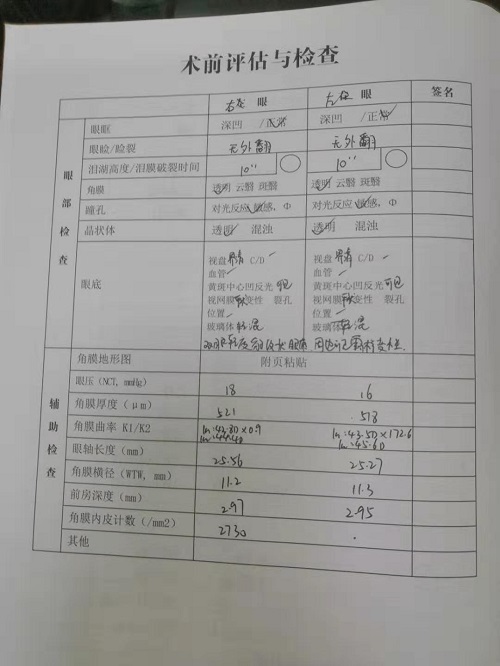 术前评估与检查
右 眼 左 眼 签名
眼部检查
眼眶 深凹 /正常 深凹 /正常
眼睑/睑裂 无外翻 无外翻
泪湖高度/泪膜破裂时间 10'' 10''
角膜 透明 云翳 斑翳 透明 云翳 斑翳
瞳孔 对光反应 敏感，Φ 对光反应 敏感，Φ
晶状体 透明 混浊 透明 混浊
眼底
视盘 界清 C/D 视盘 界清 C/D
血管 血管
黄斑中心凹反光 可见 黄斑中心凹反光 可见
视网膜 变性 裂孔 视网膜 变性 裂孔
位置 位置
玻璃体 轻混 玻璃体 轻混
辅助检查
角膜地形图 附页粘贴
眼压（NCT, mmHg） 18 16
角膜厚度（μm） 521 518
角膜曲率 K1/K2 42.80 x 0.9 43.50 x 172.6
44.40 45.60
眼轴长度（mm） 25.56 25.27
角膜横径（WTW, mm） 11.2 11.3
前房深度（mm） 2.97 2.95
角膜内皮计数（/mm2） 2730
其他